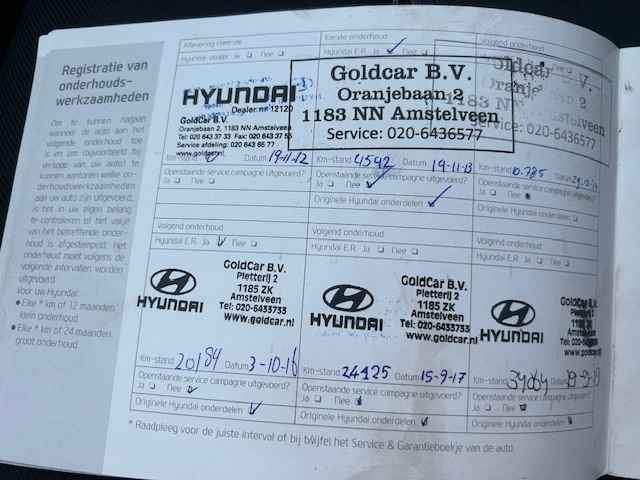 Registratie van
onderhouds-
werkzaamheden
Om te kunnen nagaan
wanneer de auto aan het
volgende onderhoud toe
is en om bijvoorbeeld te
kunnen aantonen welke on-
derhoudswerkzaamheden
aan uw auto zijn uitgevoerd,
is het in uw eigen belang
te controleren of het vakje
van het betreffende onder-
houd is afgestempeld. Het
onderhoud moet volgens de
volgende intervallen worden
uitgevoerd.
Voor uw Hyundai:
• Elke * km of 12 maanden,
klein onderhoud.
• Elke * km of 24 maanden,
groot onderhoud.
Aflevering controle
Hyundai dealer Ja Nee
HYUNDAI
Dealer nr 12120
GoldCar B.V.
Oranjebaan 2, 1183 NN Amstelveen
Tel: 020 643 37 33 Fax: 020 643 37 55
Service afdeling: 020 643 65 77
www.goldcar.nl
Datum 19-11-12
Openstaande service campagne uitgevoerd?
Ja Nee
Eerste onderhoud
Hyundai E.R. Ja Nee
Goldcar B.V.
Oranjebaan 2
1183 NN Amstelveen
Service: 020-6436577
Km-stand 4542 Datum 19-11-13
Openstaande service campagne uitgevoerd?
Ja Nee
Originele Hyundai onderdelen
Volgend onderhoud
Goldcar B.V.
Oranje 2
1183 NN Amstelveen
Km-stand 10.785 Datum
Openstaande service campagne uitgevoerd?
Ja Nee
Originele Hyundai onderdelen
Volgend onderhoud
Hyundai E.R. Ja Nee
HYUNDAI
GoldCar B.V.
Pletterij 2
1185 ZK
Amstelveen
Tel: 020-6433733
www.goldcar.nl
Km-stand 20184 Datum 3-10-16
Openstaande service campagne uitgevoerd?
Ja Nee
Originele Hyundai onderdelen
Volgend onderhoud
Hyundai E.R. Ja Nee
HYUNDAI
GoldCar B.V.
Pletterij 2
1185 ZK
Amstelveen
Tel: 020-6433733
www.goldcar.nl
Km-stand 24125 Datum 15-9-17
Openstaande service campagne uitgevoerd?
Ja Nee
Originele Hyundai onderdelen
Volgend onderhoud
Hyundai E.R. Ja Nee
HYUNDAI
GoldCar
Pletterij
1185 ZK
Amstelveen
Km-stand
Openstaande service campagne uitgevoerd?
Ja Nee
Originele Hyundai onderdelen
* Raadpleeg voor de juiste interval of bij twijfel het Service & Garantieboekje van de auto.